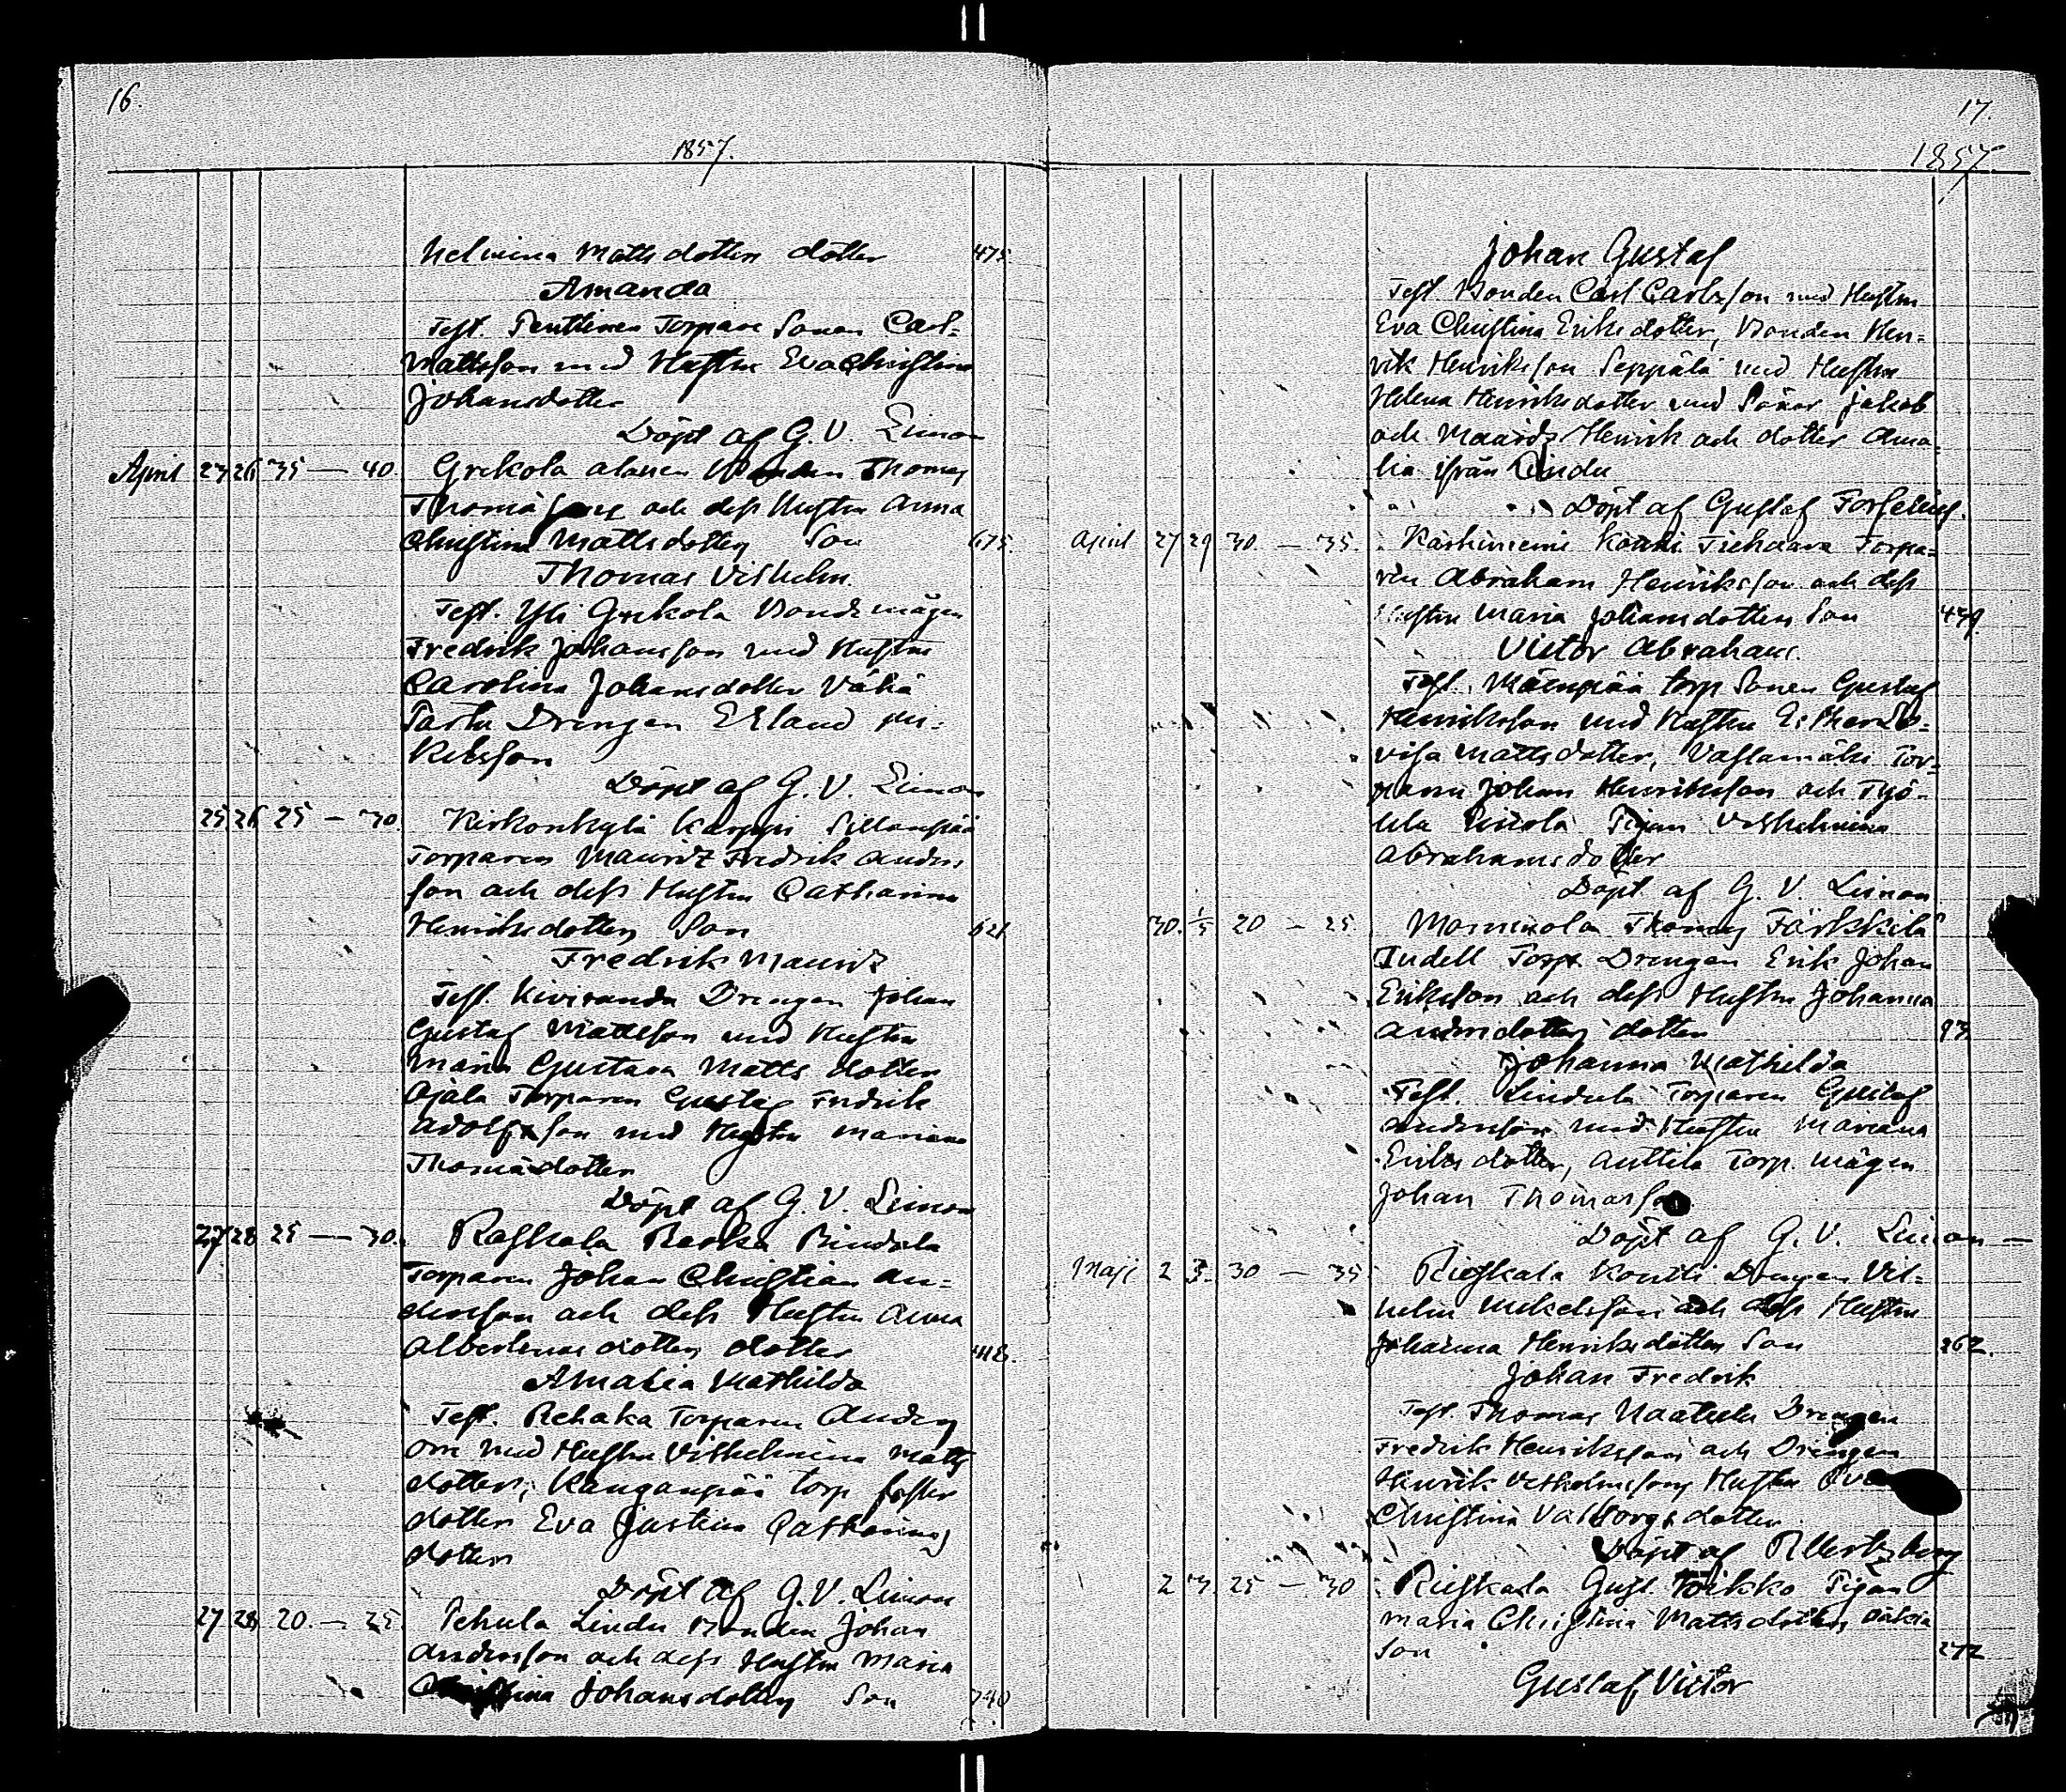 16.
1857.
Helmina Mattsdotters dotter 475
Amanda
Test. Penttinen Torpare Sonen Carl
Mattsson med Hustru Eva Christina
Johansdotter
Döpt af G. V. Limon
April 23 26 35 — 40. Grekola alanen Bonden Thomas
Thomassons och dess Hustru Anna
Christina Mattsdotters Son 675.
Thomas Vilhelm.
Test. Yli Grekola Bondemågen
Fredrik Johansson med Hustru
Carolina Johansdotter Vähä
Drengen Erland Mi-
kelsson
Döpt af G. V. Limon
25. 26 25 — 30. Kirkonkylä Karppi Sillanpää
Torparen Mauritz Fredrik Anders
son och dess Hustru Catharina
Henriksdotters Son 621
Fredrik Mauritz
Test. Kiviranda Drengen Johan
Gustaf Mattsson med Hustru
Maria Gustava Matts dotter
Ojala Torparen Gustaf Fredrik
Adolfsson med Hustru Mariana
Thomasdotter
Döpt af G. V. Limon
27 28 25 — 30. Raskala Raska Rindola
Torparen Johan Christian An-
dersson och dess Hustru Anna
Albertinas dotters dotter 418.
Amalia Mathilda
Test. Rehaka Torparen Anders
med Hustru Vilhelmina Matts
dotter, Kanganpää torp foster
dotter Eva Justina Catharinas
dotter
Döpt af G. V. Limon
27 28 20. — 25. Pehula Lindu Bonden Johan
Andersson och dess Hustru Maria
Christina Johansdotters Son 740
17.
1857.
Johan Gustaf
Test. Bonden Carl Carlsson med Hustru
Eva Christina Eriksdotter, Bonden Hen-
rik Henriksson Seppälä med Hustru
Helena Henriksdotter med Söner Jakob
och Maurits Henrik och dotter Ama-
lia ifrån Lindu
Döpt af Gustaf Forselius.
April 27 29 30 — 35. Karhiniemi Könni Tiehaara Torpa-
ren Abraham Henriksson och dess
Hustru Maria Johansdotters Son 479.
Victor Abraham.
Test. Mäenpää torp Sonen Gustaf
Henriksson med Hustru Esther Lo-
visa Mattsdotter, Vastamäki Tor-
paren Johan Henriksson och Työ-
lila Pigan Vilhelmina
Abrahamsdotter
Döpt af G. V. Limon
30. 1/5 20 — 25. Mommola Thomas Färkkilä
Indell Torp Drengen Erik Johan
Eriksson och dess Hustru Johanna
Andersdotters dotter 93.
Johanna Mathilda
Test. Lindula Torparen Gustaf
Andersson med Hustru Mariana
Eriksdotter, Anttila Torp. mågen
Johan Thomasson
Döpt af G. V. Limon —
Maji 2 3. 30 — 35 Rieskala Kontti Drengen Vil-
helm Mikelsson och dess Hustru
Johanna Henriksdotters Son 262.
Johan Fredrik
Test. Thomas Naatula Drengen
Fredrik Henriksson och Drengen
Henrik Vilhelmssons Hustru Eva
Christina Valborgsdotter
Döpt af R. Hertzberg
2 3. 25 — 30 Rieskala Gust. Toikko Pigan
Maria Christina Mattsdotters oäkta
Son 272
Gustaf Victor